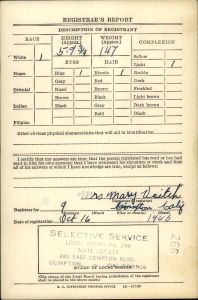 REGISTRAR'S REPORT
DESCRIPTION OF REGISTRANT
RACE
HEIGHT (Approx.)
WEIGHT (Approx.)
COMPLEXION
5-9 3/4
147
White
EYES
HAIR
Sallow
Light
Negro
Blue
Blonde
Ruddy
Gray
Red
Dark
Oriental
Hazel
Brown
Freckled
Brown
Black
Light brown
Indian
Black
Gray
Dark brown
Bald
Black
Filipino
Other obvious physical characteristics that will aid in identification
I certify that my answers are true; that the person registered has read or has had
read to him his own answers; that I have witnessed his signature or mark and that
all of his answers of which I have knowledge are true, except as follows:
Mrs Mary
Registrar for
9
Compton
Calif
Date of registration
Oct 16
1940
SELECTIVE SERVICE
LOCAL BOARD No.
240 EAST COMPTON BLVD.
COMPTON
CALIFORNIA
(The stamp of the Local Board having jurisdiction of the registrant
shall be placed in the above space)
U. S. GOVERNMENT PRINTING OFFICE